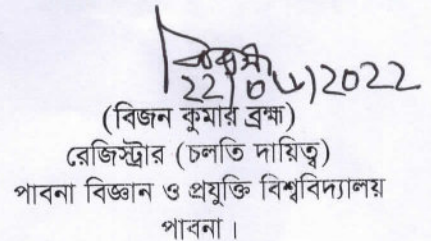 (বিজন কুমার ব্রহ্ম)
রেজিস্ট্রার (চলতি দায়িত্ব)
পাবনা বিজ্ঞান ও প্রযুক্তি বিশ্ববিদ্যালয়
পাবনা।